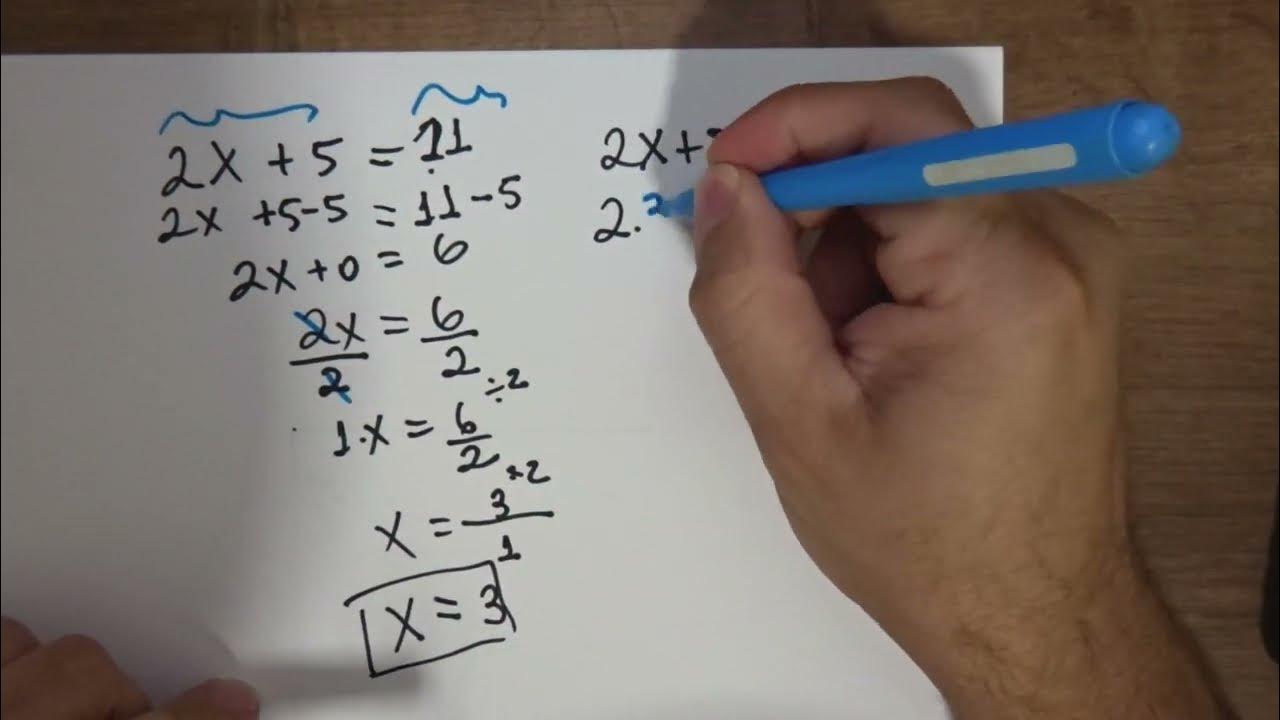 2x + 5 = 11
2x +5-5 = 11-5
2x + 0 = 6
2x/2 = 6/2
1·x = 6/2 ÷2 ÷2
x = 3/1
x = 3
2x+
2.